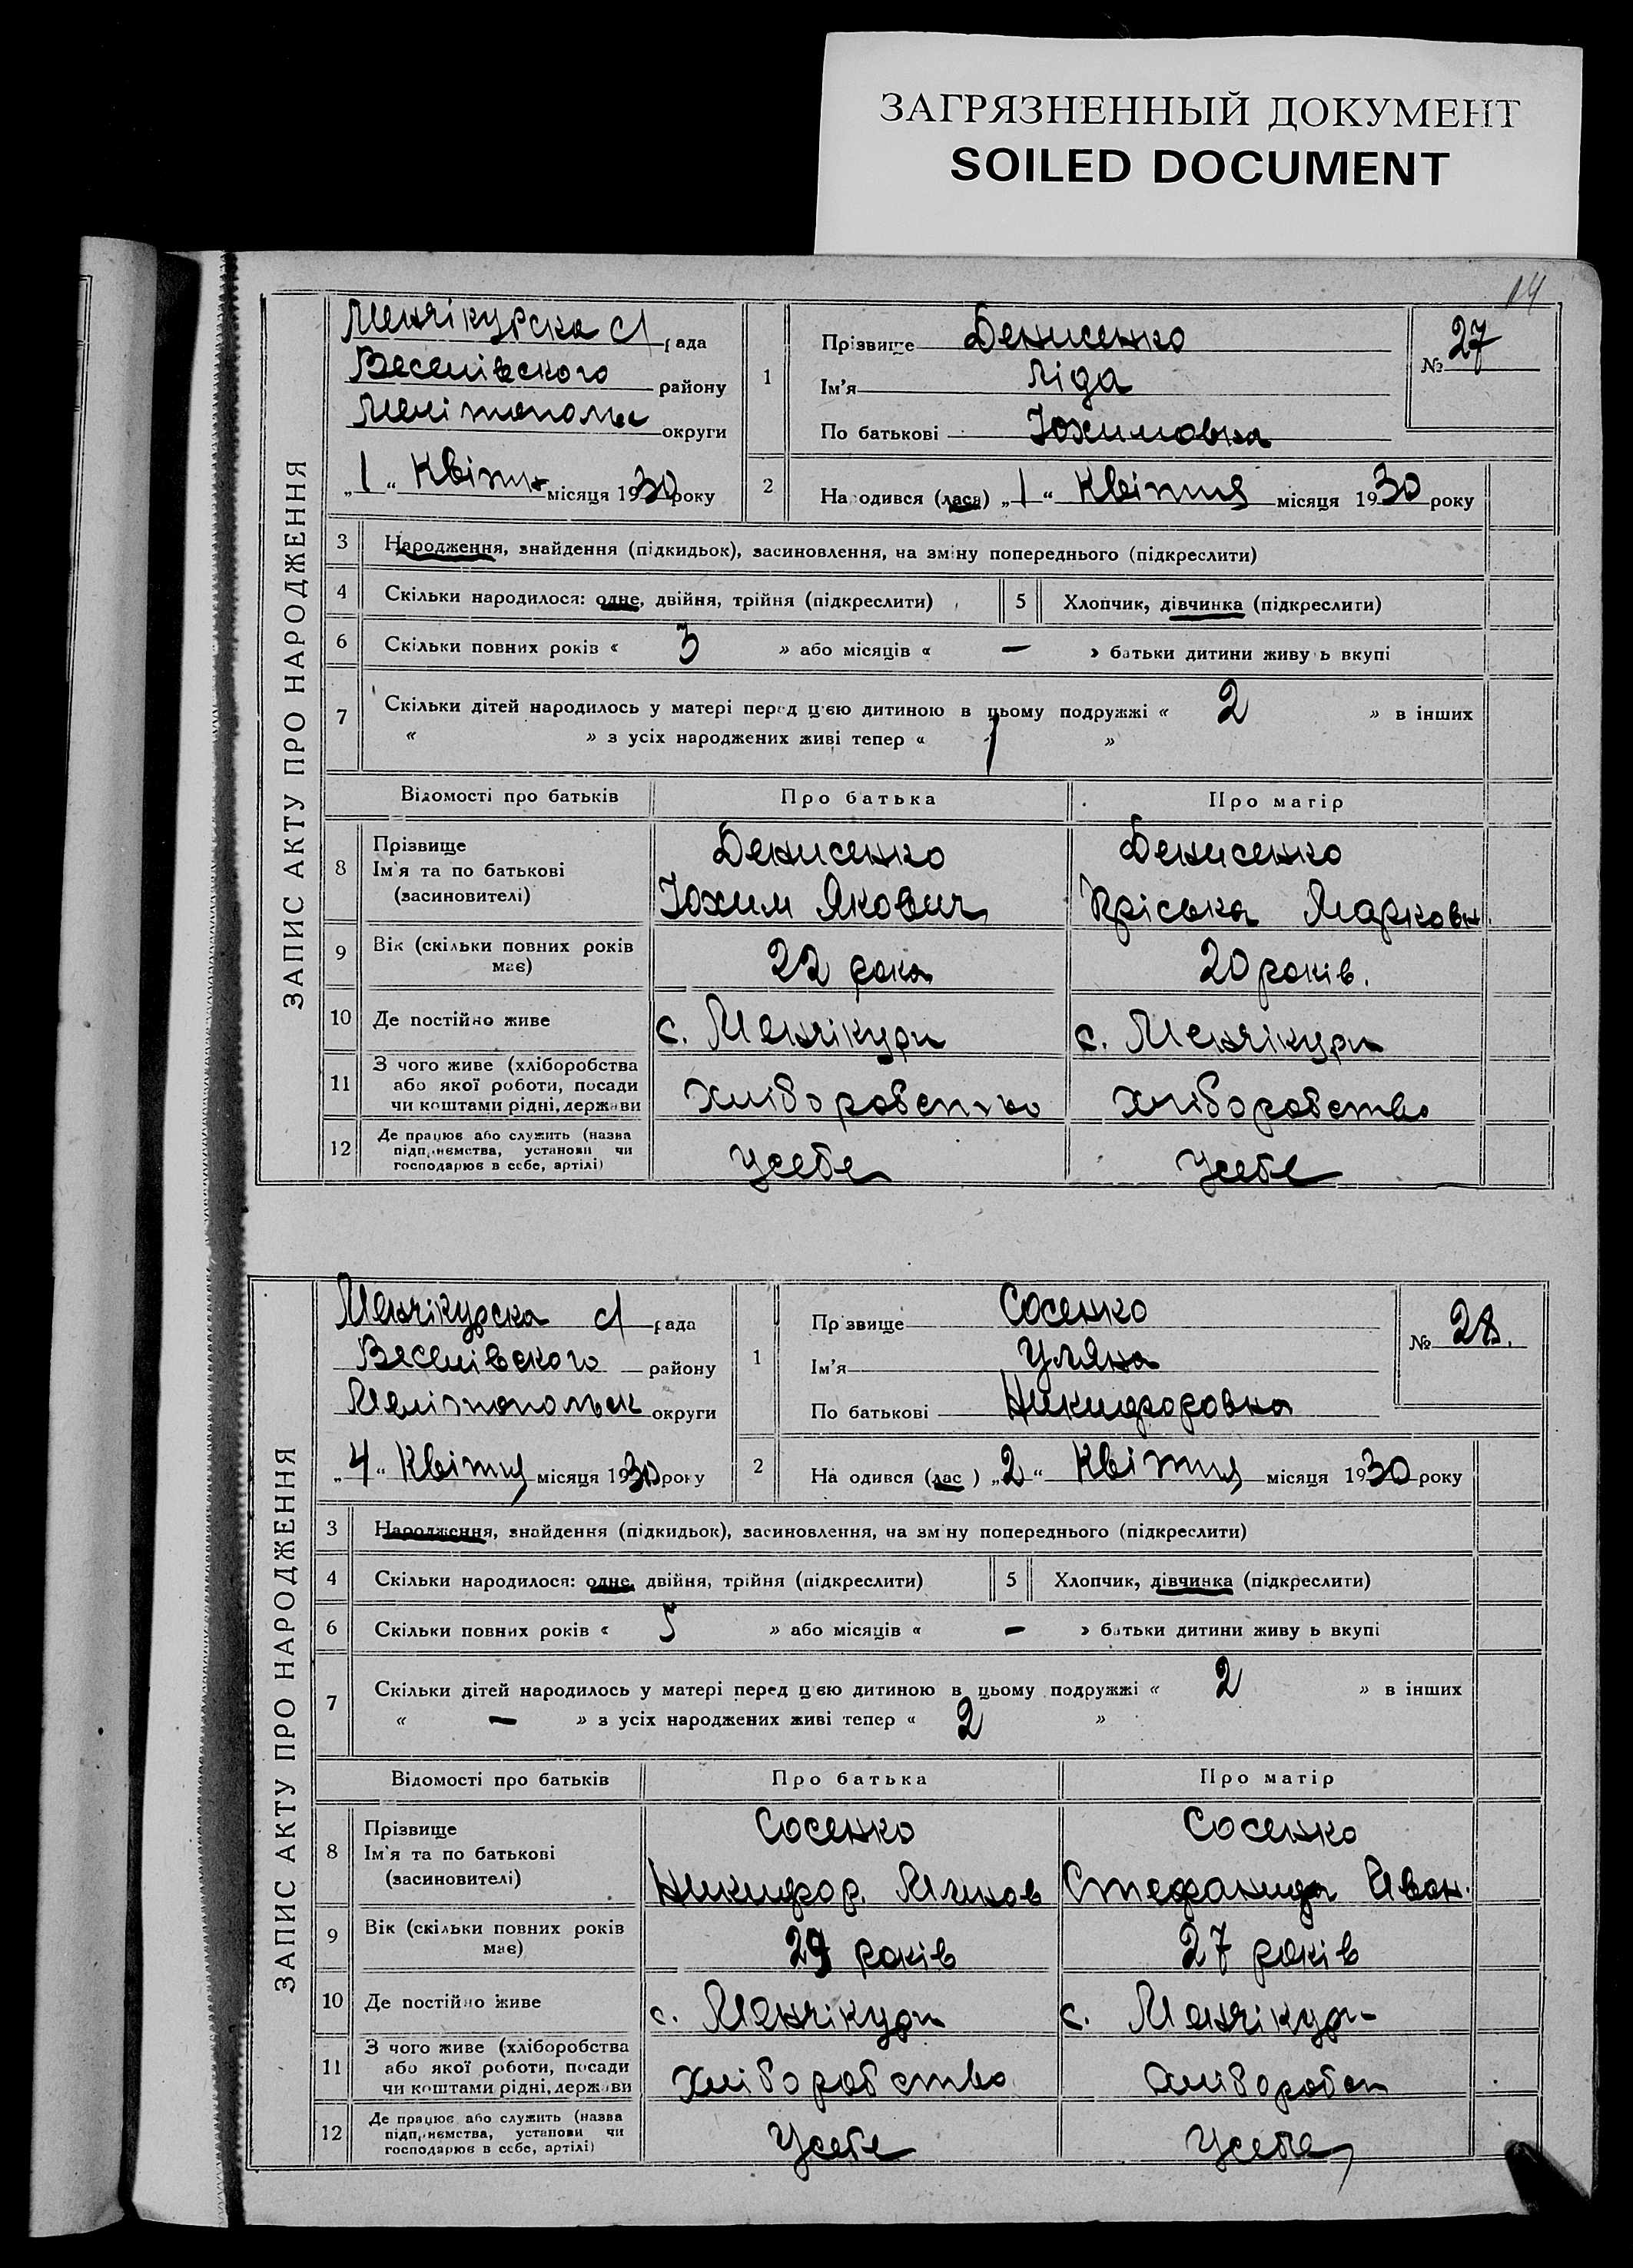 ЗАГРЯЗНЕННЫЙ ДОКУМЕНТ
SOILED DOCUMENT
14
ЗАПИС АКТУ ПРО НАРОДЖЕННЯ
Менчікурска с/рада
Веселівського району
Мелітополь округи
„1“ Квітня місяця 1930 року
1
Прізвище Денисенко
Ім'я Ліда
По батькові Юхимовна
№ 27
2
Народився (лася) „1“ Квітня місяця 1930 року
3 Народження, знайдення (підкидьок), засиновлення, на зміну попереднього (підкреслити)
4 Скільки народилося: одне, двійня, трійня (підкреслити) 5 Хлопчик, дівчинка (підкреслити)
6 Скільки повних років « 3 » або місяців « — » батьки дитини живуть вкупі
7 Скільки дітей народилось у матері перед цією дитиною в цьому подружжі « 2 » в інших
« » з усіх народжених живі тепер « 1 »
Відомості про батьків Про батька Про матір
8 Прізвище Денисенко Денисенко
Ім'я та по батькові
(засиновителі) Юхим Якович Пріська Марковн.
9 Вік (скільки повних років
має) 22 рока 20 років.
10 Де постійно живе с. Менчікури с. Менчікури
11 З чого живе (хліборобства
або якої роботи, посади
чи коштами рідні, держави Хліборобство хліборобство
12 Де працює або служить (назва
підприємства, установи чи
господарює в себе, артілі) Усебе Усебе
ЗАПИС АКТУ ПРО НАРОДЖЕННЯ
Менчікурска с/рада
Веселівського району
Мелітопольск округи
„4“ Квітня місяця 1930 року
1
Прізвище Сосенко
Ім'я Уляна
По батькові Никифоровна
№ 28.
2
Народився (лас ) „2“ Квітня місяця 1930 року
3 Народження, знайдення (підкидьок), засиновлення, на зміну попереднього (підкреслити)
4 Скільки народилося: одне, двійня, трійня (підкреслити) 5 Хлопчик, дівчинка (підкреслити)
6 Скільки повних років « 5 » або місяців « — » батьки дитини живуть вкупі
7 Скільки дітей народилось у матері перед цією дитиною в цьому подружжі « 2 » в інших
« — » з усіх народжених живі тепер « 2 »
Відомості про батьків Про батька Про матір
8 Прізвище Сосенко Сосенко
Ім'я та по батькові
(засиновителі) Никифор Степанида Иван.
9 Вік (скільки повних років
має) 29 років 27 років
10 Де постійно живе с. Менчікури с. Менчікури
11 З чого живе (хліборобства
або якої роботи, посади
чи коштами рідні, держави Хліборобство Хлібороб
12 Де працює або служить (назва
підприємства, установи чи
господарює в себе, артілі) Усебе Усебе